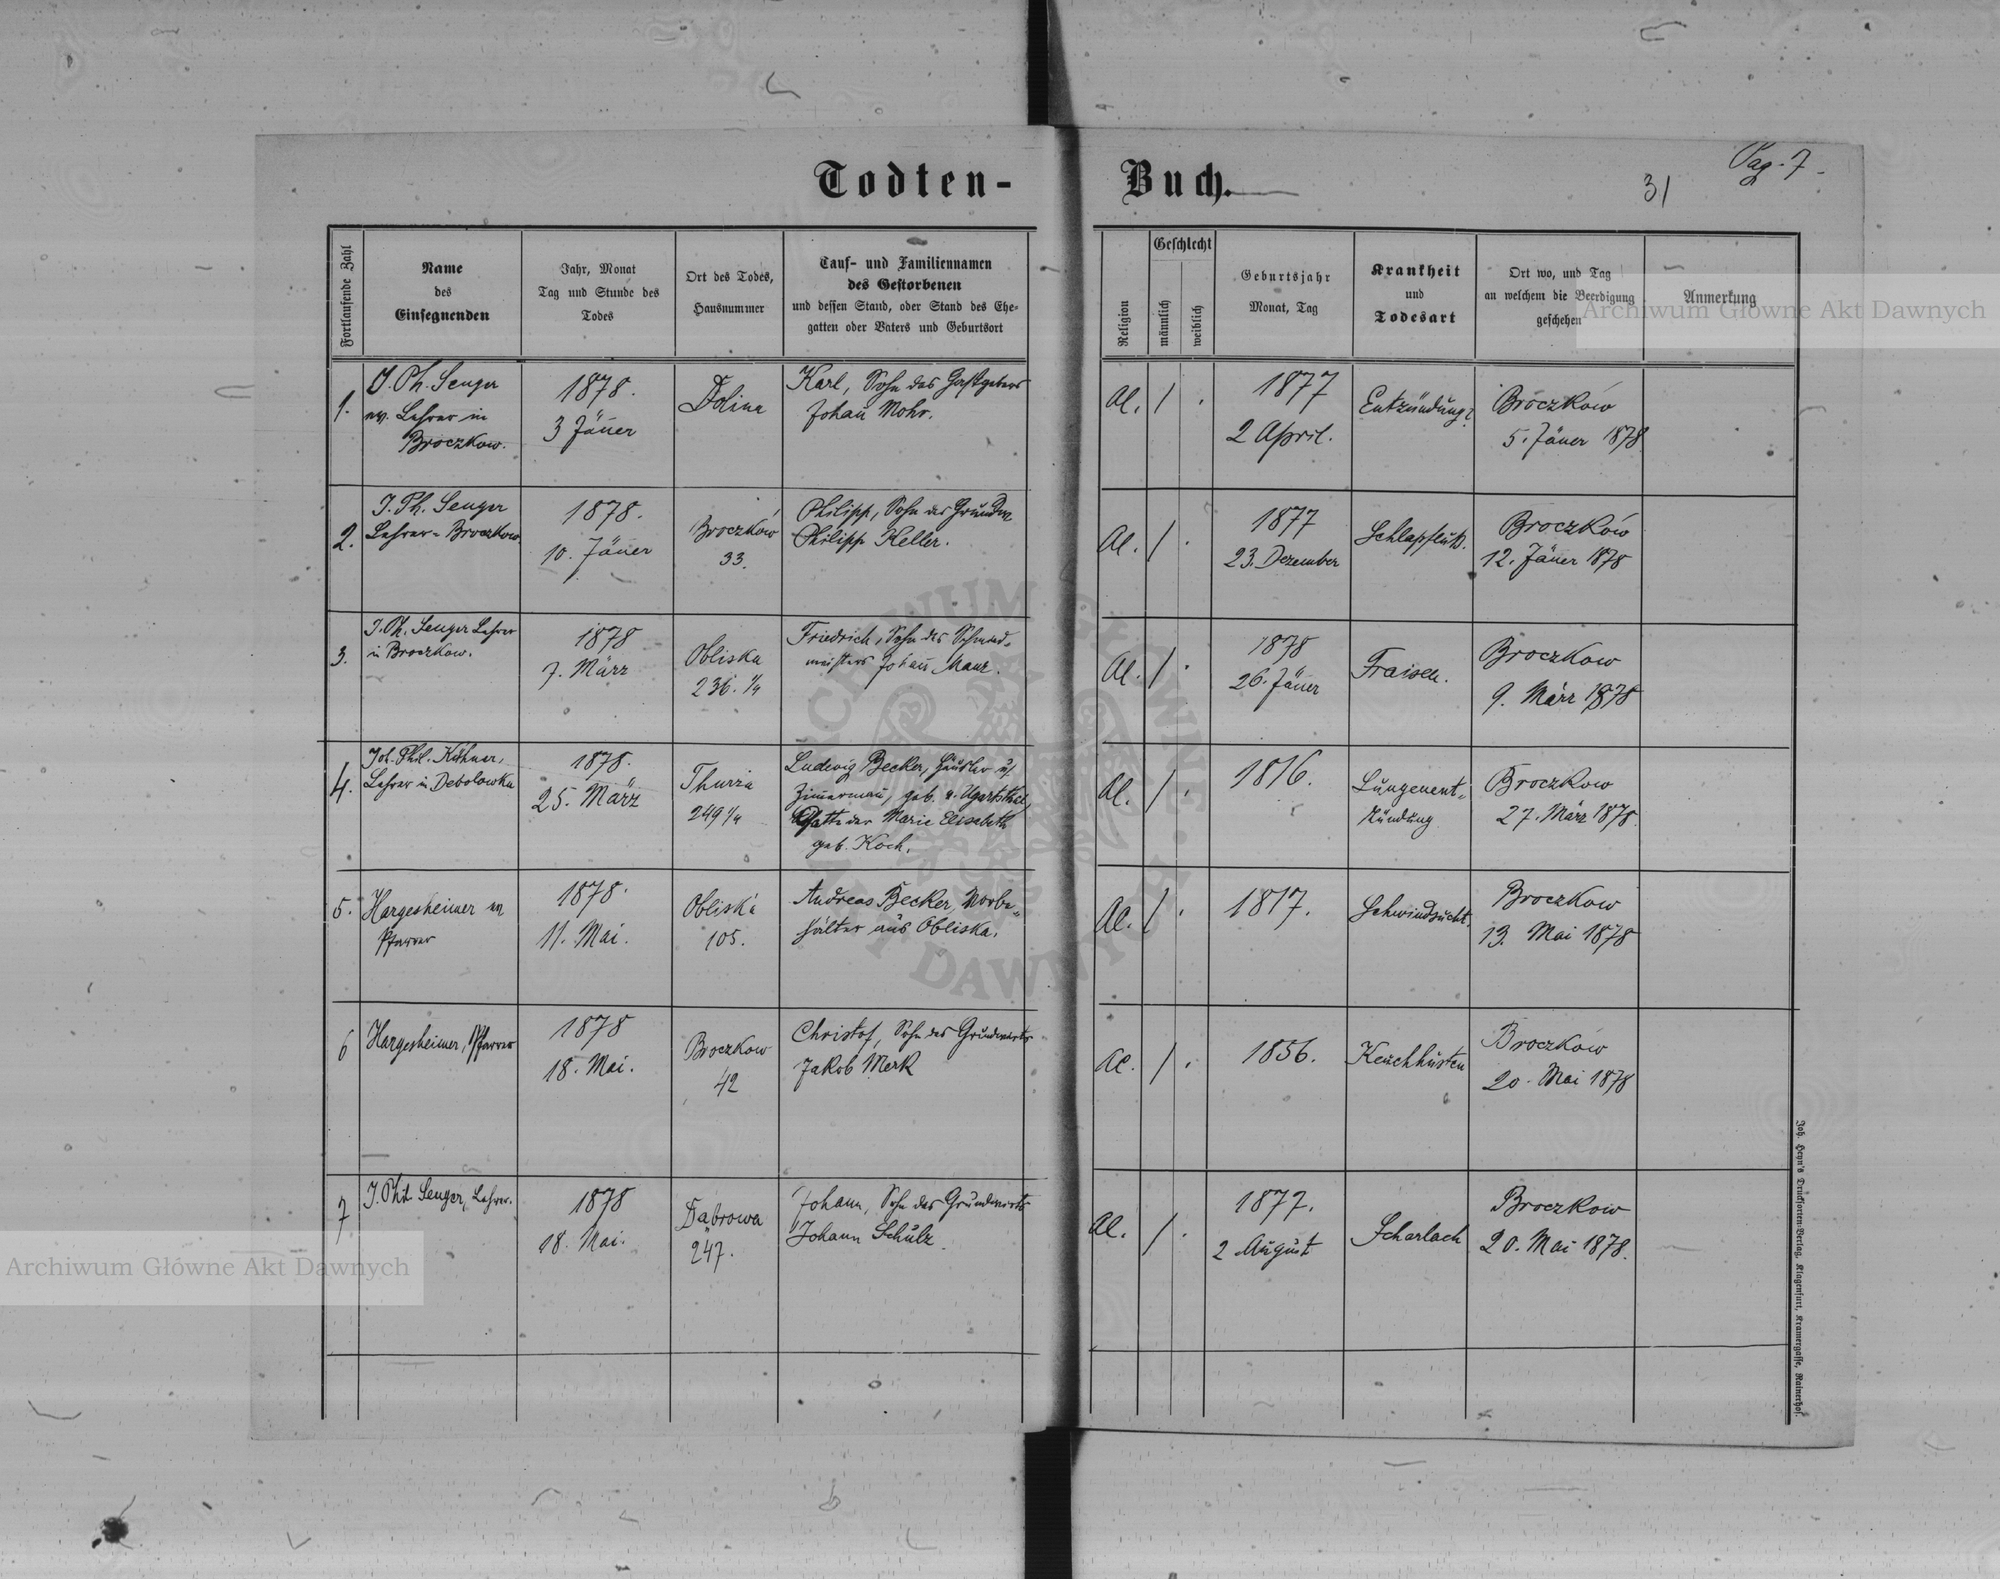 Todten-Buch.
Pag. 7.
31
Fortlaufende Zahl
Name
des
Einsegnenden
Jahr, Monat
Tag und Stunde des
Todes
Ort des Todes,
Hausnummer
Tauf- und Familiennamen
des Gestorbenen
und dessen Stand, oder Stand des Ehe-
gatten oder Vaters und Geburtsort
Religion
Geschlecht
männlich
weiblich
Geburtsjahr
Monat, Tag
Krankheit
und
Todesart
Ort wo, und Tag
an welchem die Beerdigung
geschehen
Anmerkung
1.
J. Ph. Senger
ev. Lehrer in
Broczkow.
1878.
3 Jäner
Dolina
Karl, Sohn des Gastgebers
Johañ Mohr.
1877
2 April.
Entzündung?
Broczków
5. Jäner 1878
2.
J. Ph. Senger
Lehrer - Broczkow
1878.
10. Jäner
Broczków
33.
Philipp, Sohn des
Philipp Keller.
1877
23. Dezember
Broczków
12. Jäner 1878
3.
J. Ph. Senger Lehrer
in Broczkow.
1878
7. März
Obliska
236. 1/4
Friedrich, Sohn des Schmied-
meisters Johañ Maur.
1878
26. Jäner
Fraisen.
Broczkow
9. März 1878
4.
Joh. Phil. Kühner,
Lehrer in Debolowka
1878.
25. März
Thurza
249 1/4
Ludwig Becker, Häusler u.
Zimermañ, geb. a. Ugartsthal,
Gatte der Marie Elisabeth
geb. Koch.
1816.
Lungenent-
zündung
Broczkow
27. März 1878.
5.
Hargesheimer
Pfarrer
1878.
11. Mai.
Obliska
105.
Andreas Becker, Vorbe-
hälter aus Obliska.
1817.
Schwindsucht.
Broczkow
13. Mai 1878
6
Hargesheimer, Pfarrer
1878
18. Mai.
Broczkow
42
Christof, Sohn des Grundwirts
Jakob Merk
1856.
Keuchhusten
Broczków
20. Mai 1878
7
J. Phil. Senger, Lehrer.
1878
18. Mai.
Dąbrowa
247.
Johann, Sohn des Grundwirts
Johann Schulz
1877.
2 August
Scharlach
Broczkow
20. Mai 1878.
Joh. Heyn's Drucksorten-Verlag, Klagenfurt, Kramergasse, Rainerhof.
Archiwum Główne Akt Dawnych
Archiwum Główne Akt Dawnych
ARCHIWUM GŁÓWNE AKT DAWNYCH